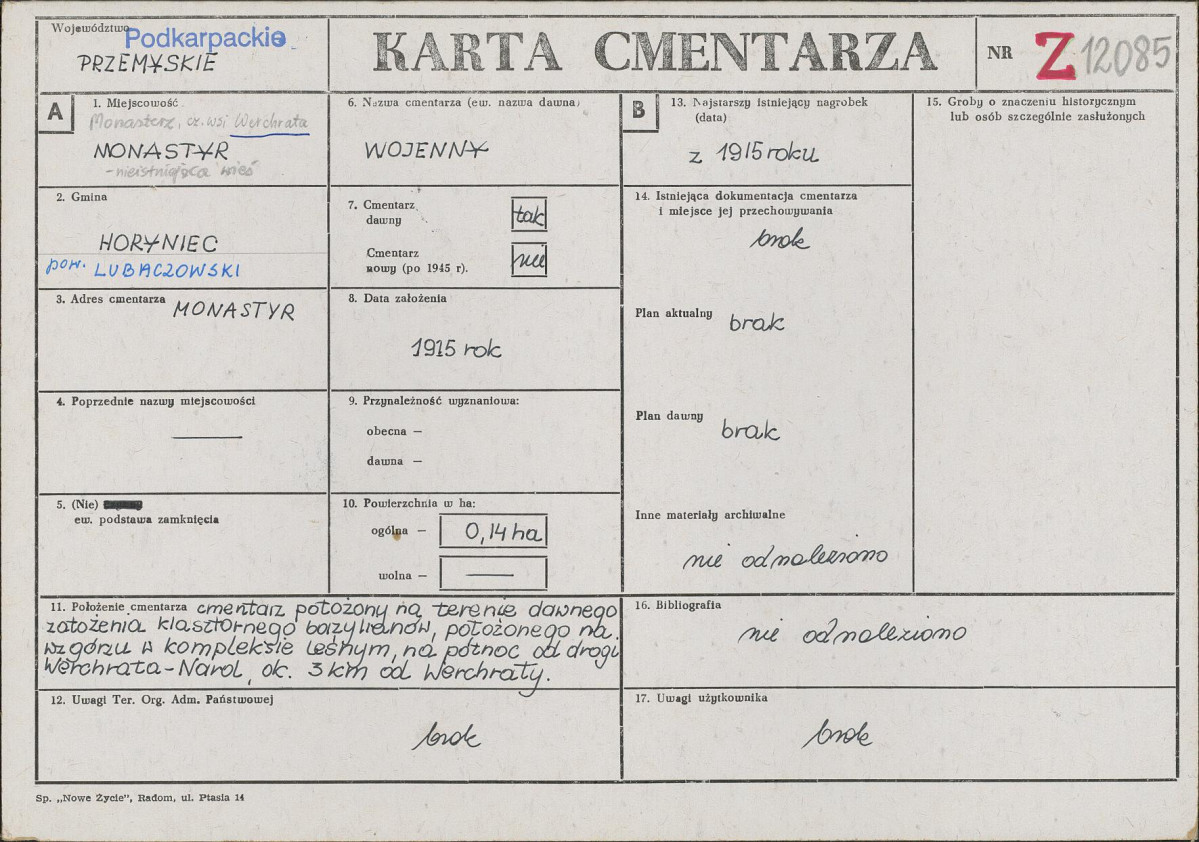 Województwo Podkarpackie
PRZEMYSKIE
KARTA CMENTARZA
NR Z 12085
A
1. Miejscowość
Monasterz, cz. wsi Werchrata
MONASTYR
- nieistniejąca wieś
2. Gmina
HORYNIEC
pow. LUBACZOWSKI
3. Adres cmentarza MONASTYR
4. Poprzednie nazwy miejscowości
—
5. (Nie)
ew. podstawa zamknięcia
6. Nazwa cmentarza (ew. nazwa dawna)
WOJENNY
7. Cmentarz
dawny tak
Cmentarz
nowy (po 1945 r). nie
8. Data założenia
1915 rok
9. Przynależność wyznaniowa:
obecna —
dawna —
10. Powierzchnia w ha:
ogólna — 0,14 ha
wolna — —
11. Położenie cmentarza cmentarz położony na terenie dawnego
założenia klasztornego bazylianów, położonego na
wzgórzu w kompleksie leśnym, na północ od drogi
Werchrata-Narol, ok. 3 km od Werchraty.
12. Uwagi Ter. Org. Adm. Państwowej
brak
B
13. Najstarszy istniejący nagrobek
(data)
z 1915 roku
14. Istniejąca dokumentacja cmentarza
i miejsce jej przechowywania
brak
Plan aktualny brak
Plan dawny brak
Inne materiały archiwalne
nie odnaleziono
15. Groby o znaczeniu historycznym
lub osób szczególnie zasłużonych
16. Bibliografia
nie odnaleziono
17. Uwagi użytkownika
brak
Sp. „Nowe Życie", Radom, ul. Ptasia 14